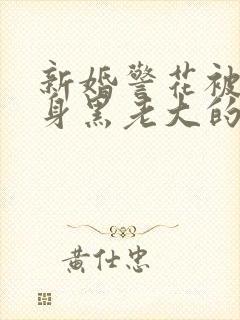 新婚警花被
身黑老大的
黄仕忠